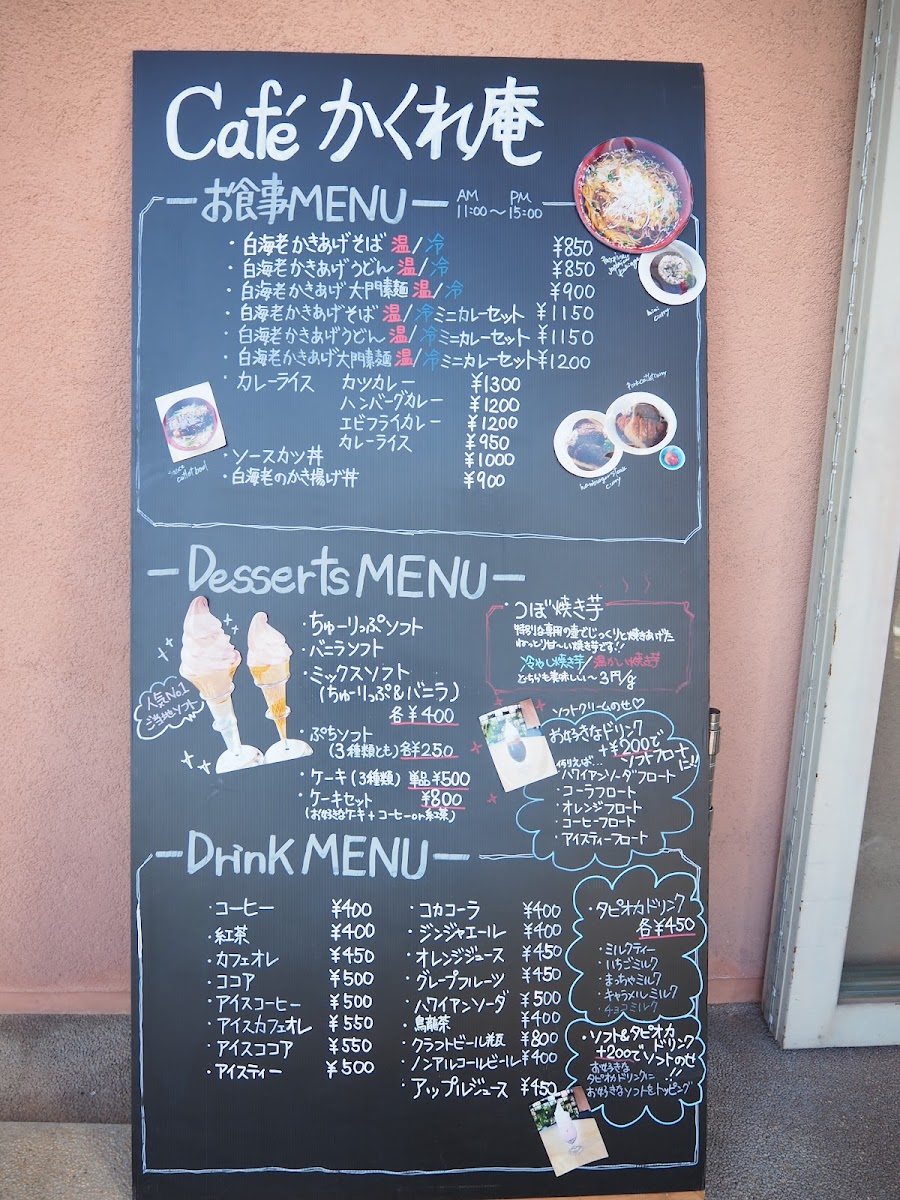 Café かくれ庵
お食事MENU AM 11:00～PM 15:00
・白海老かきあげそば 温/冷 ¥850
・白海老かきあげうどん 温/冷 ¥850
・白海老かきあげ大門素麺 温/冷 ¥900
・白海老かきあげそば 温/冷ミニカレーセット ¥1150
・白海老かきあげうどん 温/冷ミニカレーセット ¥1150
・白海老かきあげ大門素麺 温/冷ミニカレーセット ¥1200
・カレーライス カツカレー ¥1300
ハンバーグカレー ¥1200
エビフライカレー ¥1200
カレーライス ¥950
・ソースカツ丼 ¥1000
・白海老のかき揚げ丼 ¥900
mini curry
Pork cutlet curry
curry
cutlet bowl
Desserts MENU
人気No.1
ご当地ソフト
・ちゅーりっぷソフト
・バニラソフト
・ミックスソフト
(ちゅーりっぷ&バニラ)
各¥400
・ぷちソフト
(3種類とも) 各¥250
・ケーキ(3種類) 単品¥500
・ケーキセット ¥800
(お好きなケーキ+コーヒーor紅茶)
・つぼ焼き芋
特別な専用の壷でじっくりと焼きあげた
ねっとり甘～い焼き芋です!!
冷やし焼き芋/温かい焼き芋
どちらも美味しい～3円/g
ソフトクリームのせ♡
お好きなドリンク
+¥200で
ソフトフロートに!!
例えば…
・ハワイアンソーダフロート
・コーラフロート
・オレンジフロート
・コーヒーフロート
・アイスティーフロート
Drink MENU
・コーヒー ¥400
・紅茶 ¥400
・カフェオレ ¥450
・ココア ¥500
・アイスコーヒー ¥500
・アイスカフェオレ ¥550
・アイスココア ¥550
・アイスティー ¥500
・コカコーラ ¥400
・ジンジャエール ¥400
・オレンジジュース ¥450
・グレープフルーツ ¥450
・ハワイアンソーダ ¥500
・烏龍茶 ¥400
・クラフトビール ¥800
・ノンアルコールビール ¥400
・アップルジュース ¥450
・タピオカドリンク
各¥450
・ミルクティー
・いちごミルク
・まっちゃミルク
・キャラメルミルク
・チョコミルク
・ソフト&タピオカドリンク
+200でソフトのせ!!
お好きな
タピオカドリンクに
お好きなソフトをトッピング